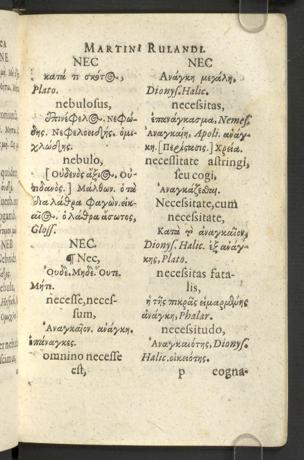 MARTINI RULANDI.
NEC
κατά τι σκότ(ος),
Plato.
nebulosus,
Ἐπινέφελ(ος). Νεφώ-
δης. Νεφελοειδής. ὁμι-
χλώδης.
nebulo,
[Οὐδενὸς ἄξι(ος). Οὐ-
τιδανός.] Μάλθων. ὁ τὰ
λάθρα φαγὼν.
ὁ λάθρα ἄσωτες,
Gloss.
NEC.
¶ Nec,
Οὐδέ. Μηδέ. Οὔτι.
Μήτι.
necesse, neces-
sum,
Ἀναγκαῖον. ἀνάγκη.
ἐπάναγκες.
omnino necesse
est,
NEC
Ἀνάγκη μεγάλη,
Dionys. Halic.
necessitas,
ἐπανάγκασμα, Nemes.
Ἀναγκαίη, Apoll. ἀνάγ-
κη. [Περίστασις.] Χρεία.
necessitate astringi,
seu cogi,
Ἀναγκάζεσθαι.
Necessitate, cum
necessitate,
Κατὰ τ' ἀναγκαῖον,
Dionys. Halic. ἐξ ἀνάγ-
κης, Plato.
necessitas fata-
lis,
ἡ τῆς πικρᾶς εἱμαρμένης
ἀνάγκη, Phalar.
necessitudo,
Ἀναγκαιότης, Dionys.
Halic. οἰκειότης.
p cogna-